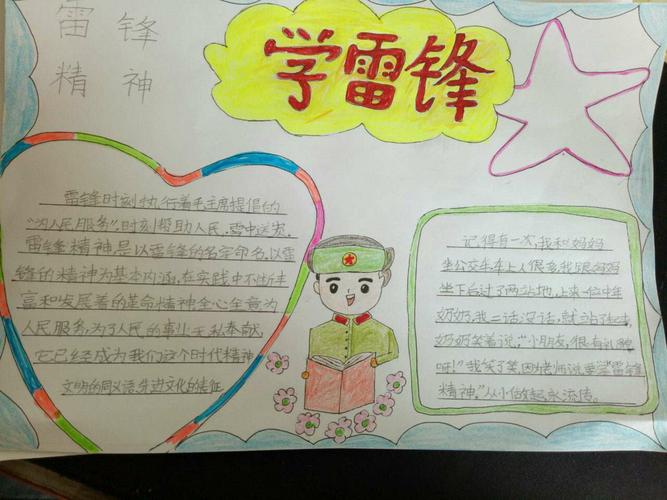 雷锋
精神
学雷锋
雷锋时刻执行着毛主席提倡的
"为人民服务"时刻帮助人民,雪中送炭。
雷锋精神是以雷锋的名字命名,以雷
锋的精神为基本内涵,在实践中不断丰
富和发展着的革命精神全心全意为
人民服务,为了人民的事业无私奉献
它已经成为我们这个时代精神
文明的同义语,先进文化的表征
记得有一次,我和妈妈
坐公交车车上人很多,我跟妈妈
坐下后过了两站地,上来一位中年
奶奶,我二话没话,就站了起来,
奶奶笑着说,"小朋友,很有礼貌
呀!"我笑了笑,因为老师说要学"雷锋
精神。"从小做起永流传。